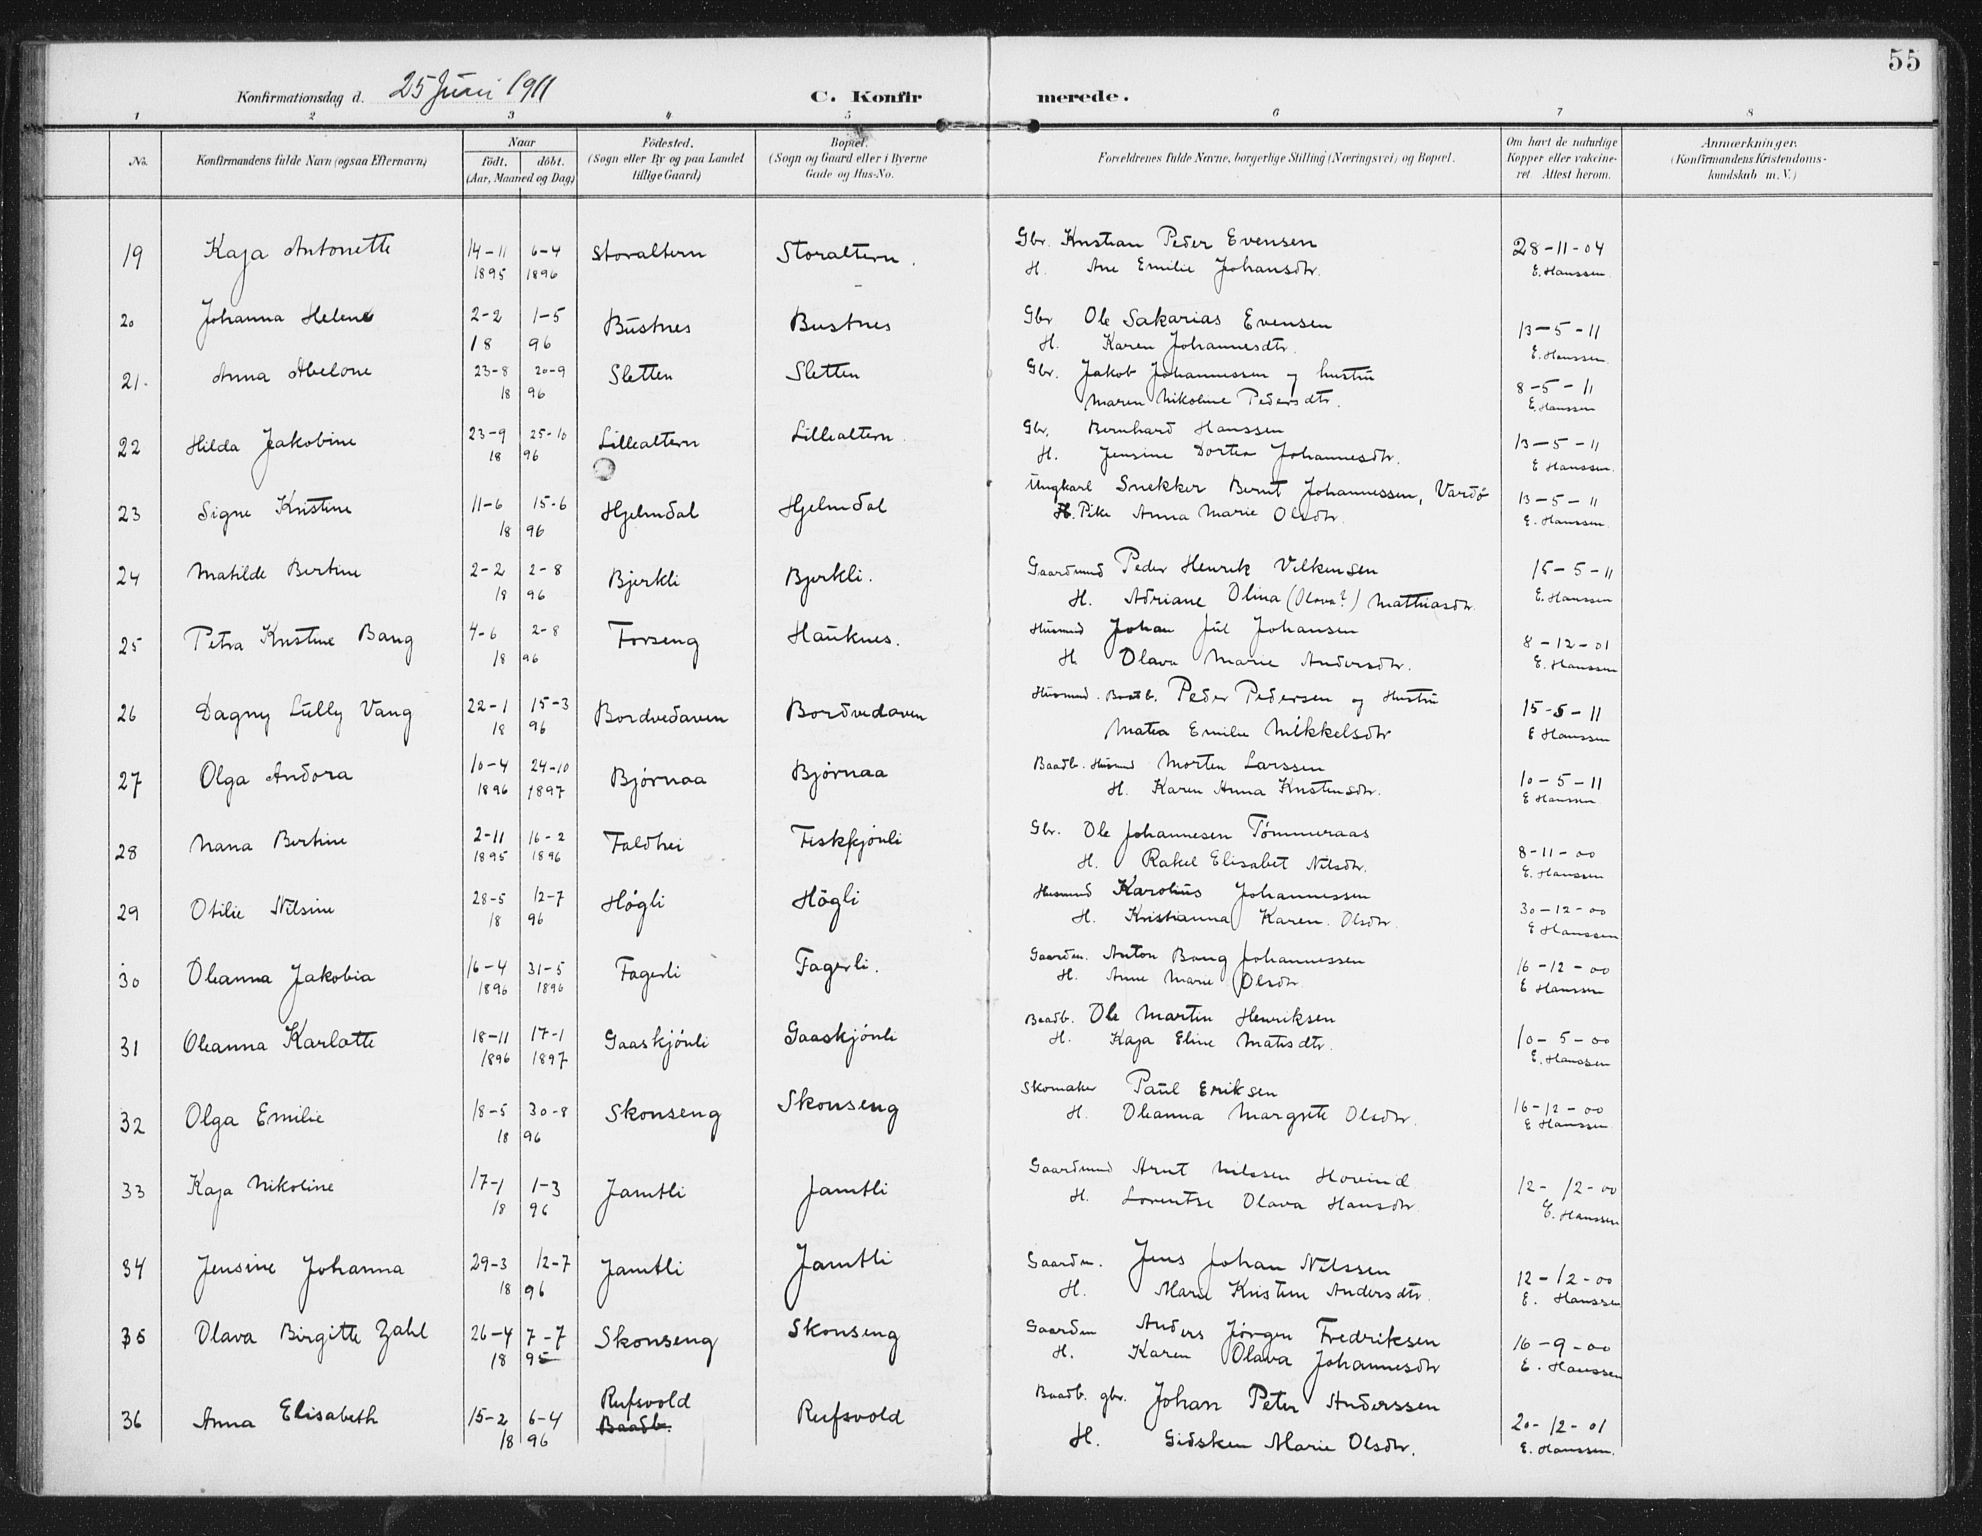 55
Konfirmationsdag d. 25 Juni 1911
C. Konfirmerede.
1 2 3 4 5 6 7 8
No.
Konfirmandens fulde Navn (ogsaa Efternavn)
Naar
födt. döbt.
(Aar, Maaned og Dag)
Födested.
(Sogn eller By og paa Landet
tillige Gaard)
Bopæl.
(Sogn og Gaard eller i Byerne
Gade og Hus-No.
Forældrenes fulde Navne, borgerlige Stilling (Næringsvei) og Bopæl.
Om havt de naturlige
Kopper eller vakcine-
ret Attest herom.
Anmærkninger.
(Konfirmandens Kristendoms-
kundskab m. V.)
19 Kaja Antonette 14-11 6-4 Storaltern Storaltern. Gbr. Kristian Peder Evensen 28-11-04
1895 1896 H. Ane Emilie Johansdtr. E. Hanssen
20 Johanna Helene 2-2 1-5 Bustnes Bustnes Gbr Ole Sakarias Evensen 13-5-11
18 96 H. Karen Johannesdtr. E. Hanssen
21. Anna Abelone 23-8 20-9 Sletten Sletten Gbr. Jakob Johannessen og hustru 8-5-11
18 96 Maren Nikoline Pedersdtr. E. Hanssen
22 Hilda Jakobine 23-9 25-10 Lillealtern Lillealtern. Gbr. Bernhard Hanssen 13-5-11
18 96 H. Jensine Dortea Johannesdtr. E Hanssen.
23 Signe Kristine 11-6 15-6 Hjelmdal Hjelmdal Ungkarl Snekker Bernt Johannessen, Vardö 13-5-11
18 96 Pike Anna Marie Olsdtr. E. Hanssen
24 Matilde Bertine 2-2 2-8 Bjerkli Bjerkli. Gaardmand Peder Henrik Vilkensen 15-5-11
18 96 H. Adriane Olina (Olava?) Mathiasdtr. E. Hanssen
25 Petra Kristine Bang 4-6 2-8 Forseng Hauknes. Husmand Johan Jul Johansen 8-12-01
18 96 H Olava Marie Andersdtr. E. Hanssen
26 Dagny Lully Vang 22-1 15-3 Bordvedaven Bordvedaven Husmand. Baadb. Peder Pedersen og Hustru 15-5-11
18 96 Matea Emilie Mikkelsdtr E Hanssen
27 Olga Andora 10-4 24-10 Bjørnaa Bjørnaa Baadb. Husmand Morten Larssen 10-5-11
1896 1897 H. Karen Anna Kristensdtr. E Hanssen
28 Nana Bertine 2-11 16-2 Faldhei Fiskkjønli Gbr. Ole Johannesen Tømmeraas 8-11-00
1895 1896 H. Rakel Elisabet Nilsdtr. E. Hanssen
29 Otilie Nilsine 28-5 12-7 Høgli Högli Husmand Karolius Johannessen 30-12-00
18 96 H. Kristianna Karen Olsdtr. E Hanssen
30 Oleanna Jakobia 16-4 31-5 Fagerli Fagerli. Gaardm. Anton Bang Johannessen 16-12-00
1896 1896 H. Anne Marie Olsdtr E Hanssen
31 Oleanna Karlotte 18-11 17-1 Gaaskjönli Gaaskjönli Baadb. Ole Martin Henriksen 10-5-00
1896 1897 H. Kaja Eline Matisdtr. E. Hanssen
32 Olga Emilie 18-5 30-8 Skonseng Skonseng Skomaker Paul Eriksen 16-12-00
18 96 H. Oleanna Margrete Olsdtr. E Hanssen
33 Kaja Nikoline 17-1 1-3 Jamtli Jamtli Gaardmand Arnt Nilssen Hovind 12-12-00
18 96 H. Lorentse Olava Hansdtr. E. Hanssen
34 Jensine Johanna 29-3 12-7 Jamtli Jamtli Gaardm. Jens Johan Nilssen 12-12-00
18 96 H. Marie Kristine Andersdtr. E. Hanssen
35 Olava Birgitte Zahl 26-4 7-7 Skonseng Skonseng Gaardm Anders Jørgen Fredriksen 16-9-00
18 95 H. Karen Olava Johannesdtr E. Hanssen
36 Anna Elisabeth 15-2 6-4 Rufsvold Rufsvold Baadb. gbr. Johan Peter Anderssen 20-12-01
18 96 Baadb. H. Gidsken Marie Olsdtr. E. Hanssen.